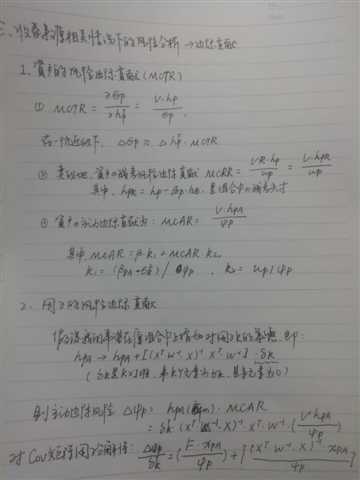 三、收益率相关情况下的风险分析 → 边际贡献
1. 资产的风险边际贡献 (MCTR)
① MCTR = ∂σp / ∂hp' = V·hp / σp .
在一阶近似下, Δσp ≈ Δhp'·MCTR
② 类似地, 资产的残差风险边际贡献 MCRR = VR·hp / ωp = V·hPR / ωp
其中, hPR = hp − βp·hB, 是组合中的残差头寸
③ 资产主动边际贡献为: MCAR = V·hPA / ψp
其中 MCAR = β·k₁ + MCRR·k₂
k₁ = (βPA·σB²) / ψp , k₂ = ωp / ψp
2. 因子的风险边际贡献
hPA → hPA + [(Xᵀ·W⁻¹·X)⁻¹·Xᵀ·W⁻¹]·δk
(δk是K×1维, 第K个元素为δk, 其余元素为0)
则主动边际风险 Δψp = hPA · MCAR
= δk·(Xᵀ·W⁻¹·X)⁻¹·Xᵀ·W⁻¹·(V·hPA / ψp)
对Cov矩阵因子分解得: Δψp / δk = (F·xPA / ψp) + [(Xᵀ·W⁻¹·X)⁻¹·xPA / ψp]